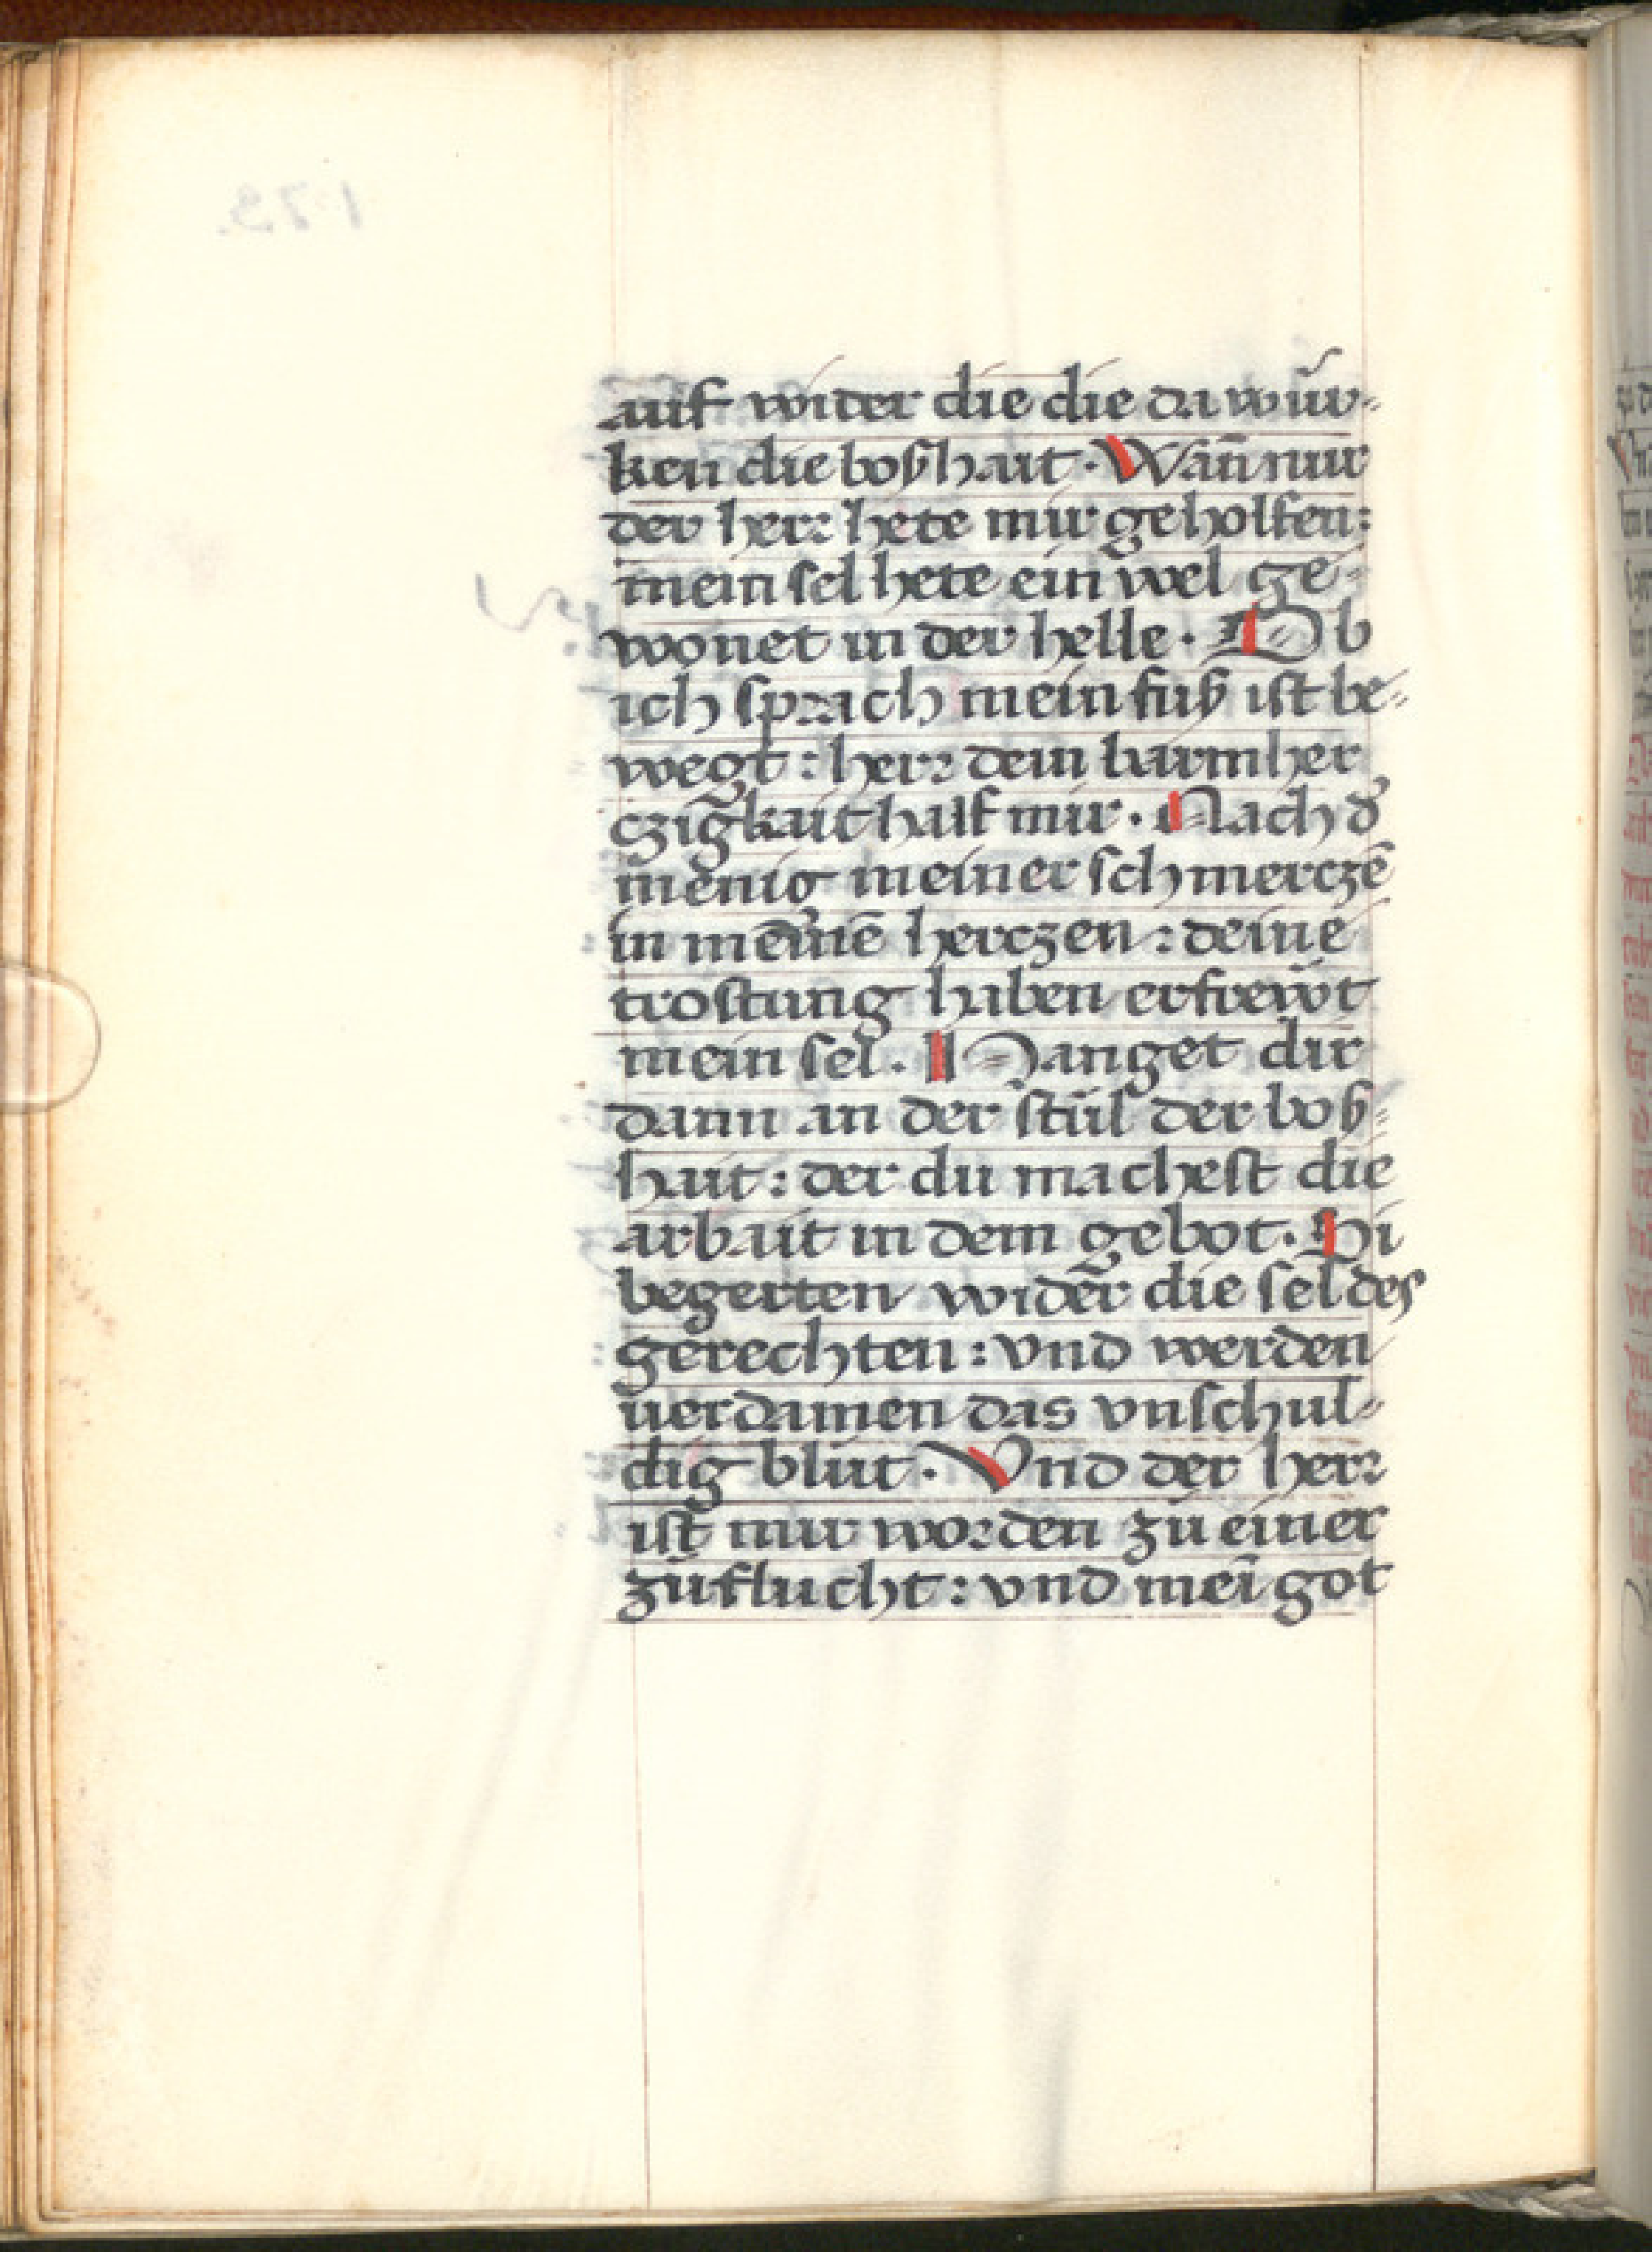 auf wider die die da wür-
ken die boßhait · Wañ nur
der herr hete mir geholfen:
mein sel hete ein wel ge-
wonet in der helle · Ob
ich sprach mein fuß ist be-
wegt : herr dein barmher
czigkait half mir · Nach d᾽
menig meiner schmerczē
in meinē herczen : deine
trostung haben erfrewt
mein sel · Hanget dir
dann an der stůl der boß-
hait : der du machest die
arbait in dem gebot · Si
begerten wider die sel des
gerechten : vnd werden
uerdamen das vnschul-
dig blůt · Vnd der herr
ist mir worden zů einer
zůflucht : vnd meī got